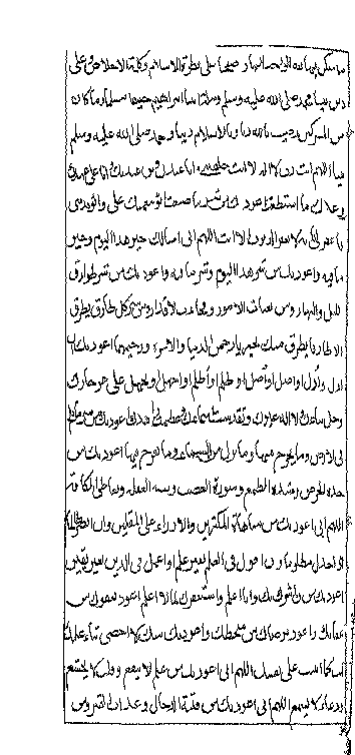 على فطرة الاسلام وكلمة الاخلاص وعلى
دين نبينا محمد صلى الله عليه وسلم وملة ابينا ابراهيم حنيفا مسلما وما كان
من المشركين رضيت بالله ربا وبالاسلام دينا وبمحمد صلى الله عليه وسلم
نبيا اللهم انت ربي لا اله الا انت خلقتني وانا عبدك وابن عبدك وانا على عهدك
ووعدك ما استطعت اعوذ بك من شر ما صنعت ابوء بنعمتك على وابوء بذنبي
فاغفر لي انه لا يغفر الذنوب الا انت اللهم اني اسالك خير هذا اليوم وخير
ما فيه واعوذ بك من شر هذا اليوم وشر ما فيه واعوذ بك من شر طوارق
الليل والنهار ومن بغتات الامور وفجاءة الاقدار ومن شر كل طارق يطرق
الا طارقا يطرق منك بخير يا رحمن الدنيا والاخرة ورحيمهما اعوذ بك ان
ازل او ازل او اضل او اضل او اظلم او اظلم او اجهل او يجهل على عز جارك
وجل ثناؤك ولا اله غيرك وتقدست اسماؤك
في الارض وما يخرج منها وما ينزل من السماء وما يعرج فيها اعوذ بك من
حدة الحرص وشدة الطمع وسورة الغضب وسنة الغفلة وتعاطي الكلفة
اللهم اني اعوذ بك من مباهاة المكثرين والازراء على المقلين وان
او اخذل مظلوما وان اقول في العلم بغير علم او اعمل في الدين بغير يقين
اعوذ بك ان اشرك بك وانا اعلم واستغفرك لما لا اعلم اعوذ بعفوك من
عقابك واعوذ برضاك من سخطك واعوذ بك منك لا احصي ثناء عليك
انت كما اثنيت على نفسك اللهم اني اعوذ بك من علم لا ينفع وقلب لا يخشع
ودعاء لا يسمع اللهم اني اعوذ بك من فتنة الدجال وعذاب القبر ومن